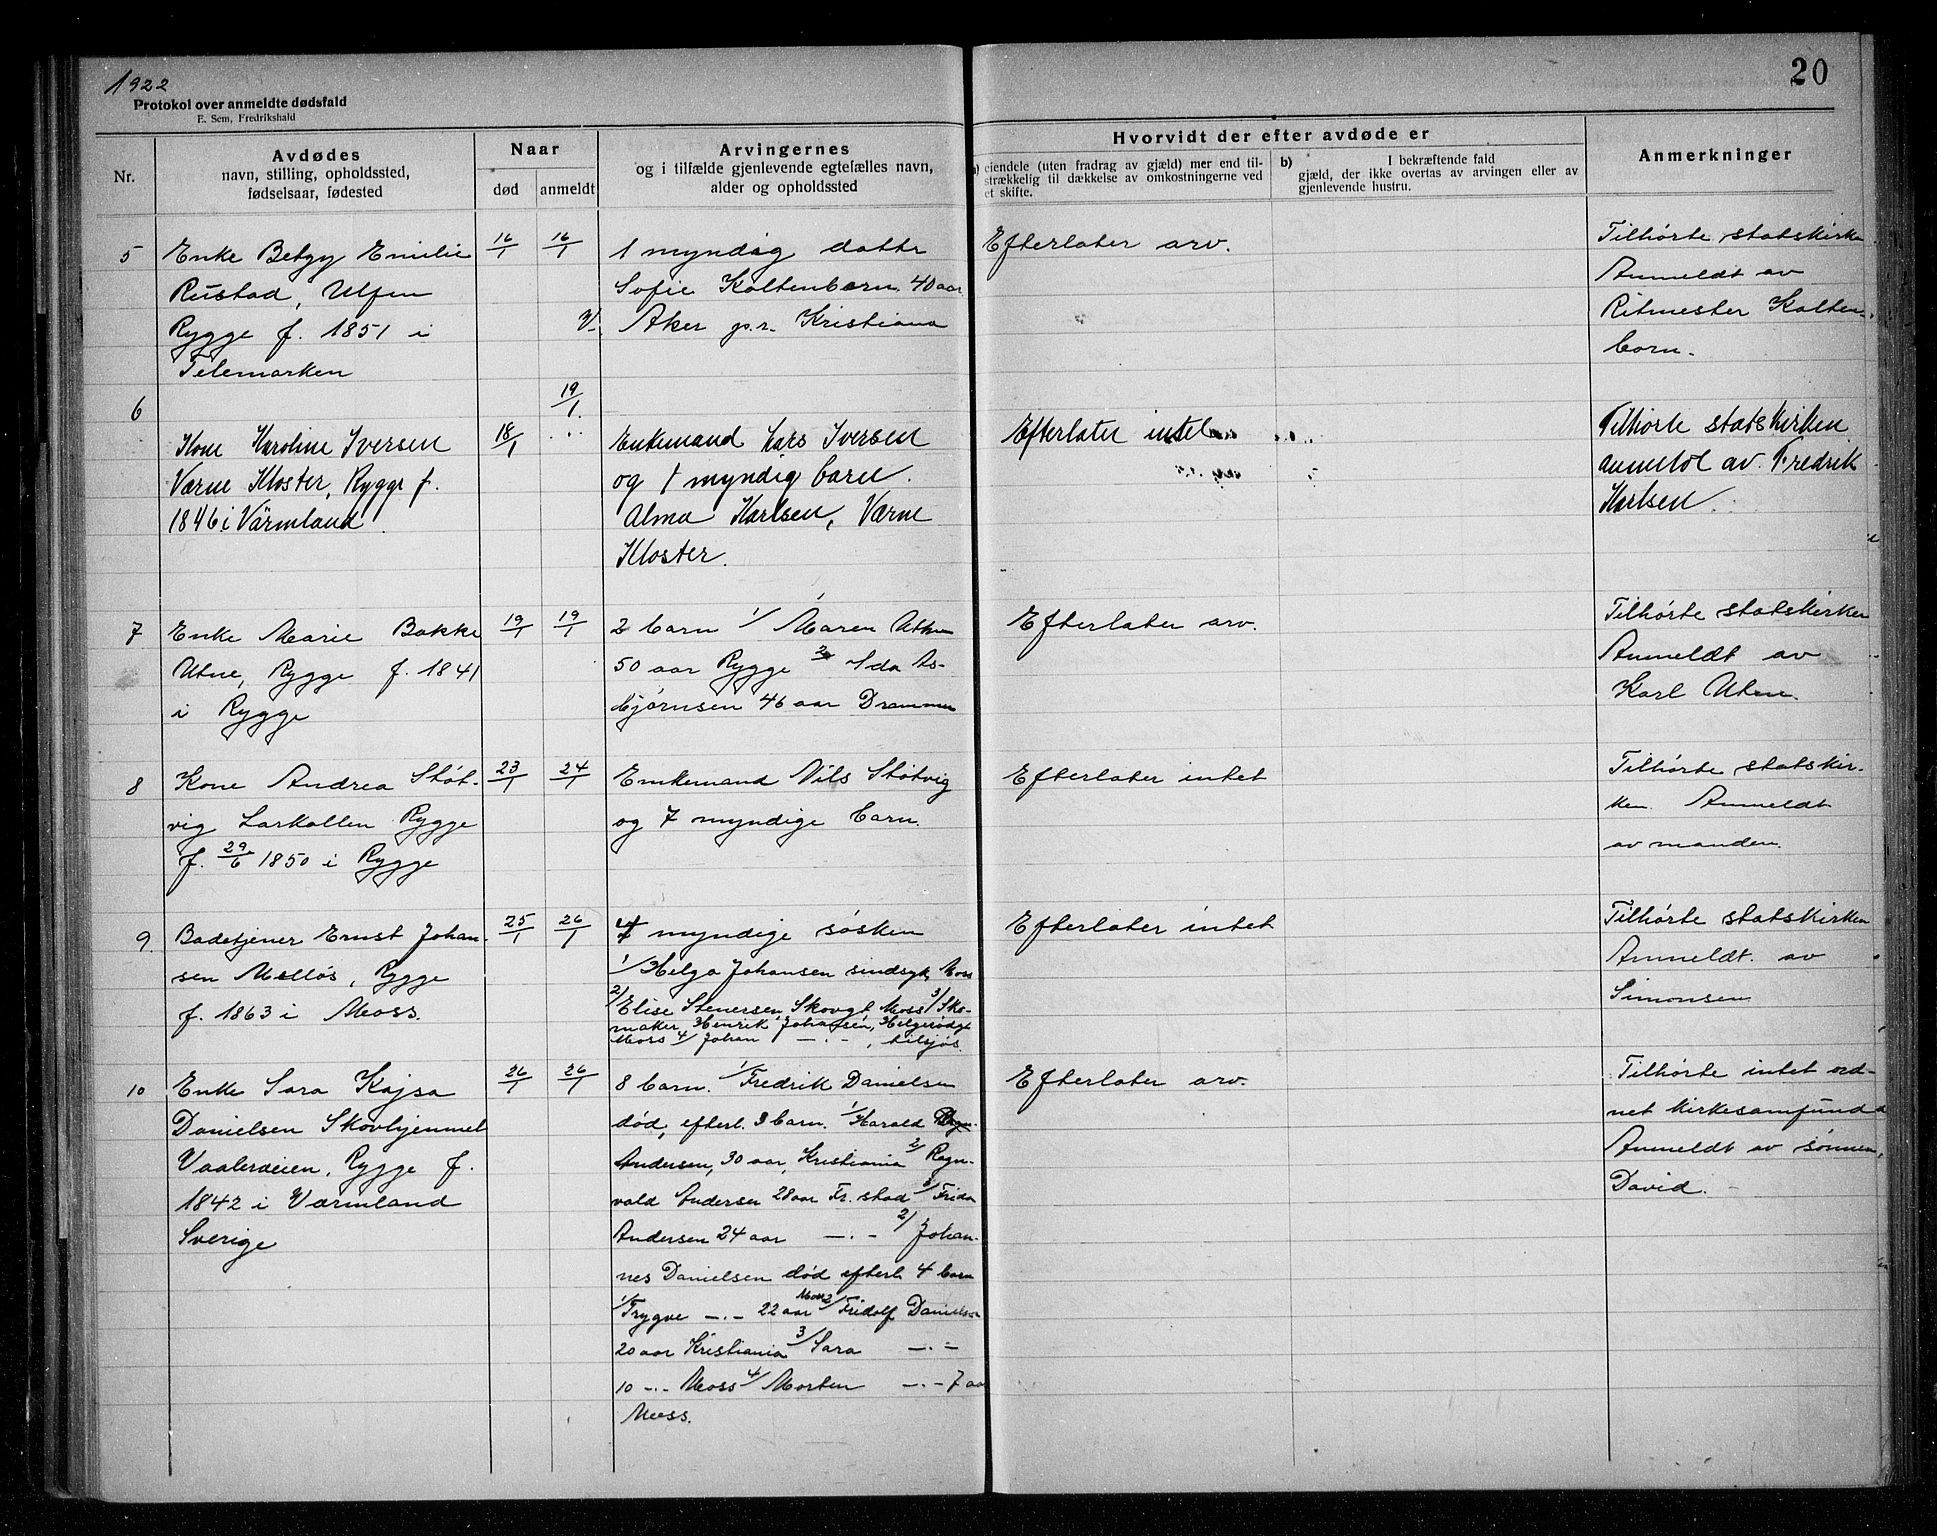 1922
20
Protokol over anmeldte dødsfald
E. Sem, Fredrikshald
Nr.
Avdødes
navn, stilling, opholdssted,
fødselsaar, fødested
Naar
død
anmeldt
Arvingernes
og i tilfælde gjenlevende egtefælles navn,
alder og opholdssted
Hvorvidt der efter avdøde er
a) eiendele (uten fradrag av gjæld) mer end til-
strækkelig til dækkelse av omkostningerne ved
et skifte.
b) I bekræftende fald
gjæld, der ikke overtas av arvingen eller av
gjenlevende hustru.
Anmerkninger
5
Enke Betzy Emilie
Rustad, Ulfen
Rygge f. 1851 i
Telemarken
16/1
16/1
V.
1 myndig datter
Sofie Koltenborn 40 aar
Aker p.r. Kristiana
Efterlater arv.
Tilhørte statskirken
Anmeldt av
Ritmester Kolten-
born.
6
Kone Karoline Iversen
Værne Kloster, Rygge f.
1846 i Värmland.
18/1
19/1.
Enkemand Lars Iversen
og 1 myndig barn.
Alma Karlsen, Værne
Kloster.
Efterlater intet
Tilhørte statskirken
anmeldt av Fredrik
Karlsen.
7
Enke Marie Bakke
Utne, Rygge f. 1841
i Rygge
19/1
19/1
2 barn 1/ Maren Utne
50 aar Rygge 2/ Ida As-
bjørnsen 46 aar Drammen
Efterlater arv.
Tilhørte statskirken
Anmeldt av
Karl Utne.
8
Kone Andrea Støt-
vig Larkollen Rygge
f. 29/6 1850 i Rygge
23/1
24/1
Enkemand Nils Støtvig
og 7 myndige barn.
Efterlater intet
Tilhørte statskir-
ken. Anmeldt
av manden.
9.
Badetjener Ernst Johan-
sen Melløs, Rygge
f. 1863 i Moss.
25/1
26/1
4 myndige søsken
1/ Helga Johansen sindsyk, Moss
2/ Elise Stenersen, Skovgt. Moss 3/ Sko-
maker Henrik Johansen, Helgerødgt
Moss 4/ Johan -.-, tilsjøs.
Efterlater intet
Tilhørte statskirken
Anmeldt. av
Simonsen
10
Enke Sara Kajsa
Danielsen Skovhjemmet
Vaalerveien, Rygge f.
1842 i Værmland
Sverige
26/1
26/1
8 barn. 1/ Fredrik Danielsen
død, efterl. 3 barn. 1/ Harald
Andersen, 30 aar, Kristiania 2/ Ragn-
vald Andersen 28 aar Fr. stad 3/ Frida
Andersen 24 aar -.- 2/ Johan-
nes Danielsen død efterl. 4 barn
1/ Trygve -.- 22 aar Moss 2/ Fridolf Danielsen
20 aar Kristiania 3/ Sara -.-
10 -.- Moss 4/ Morten -.- 7 aar
Moss.
Efterlater arv.
Tilhørte intet ord-
net kirkesamfund
Anmeldt av sønnen,
David.